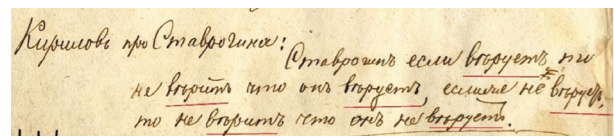 Кириловъ про Ставрогина:
Ставрогинъ если вѣруетъ то
не вѣритъ что онъ вѣруетъ, еслиже не вѣруетъ,
то не вѣритъ что онъ не вѣруетъ.